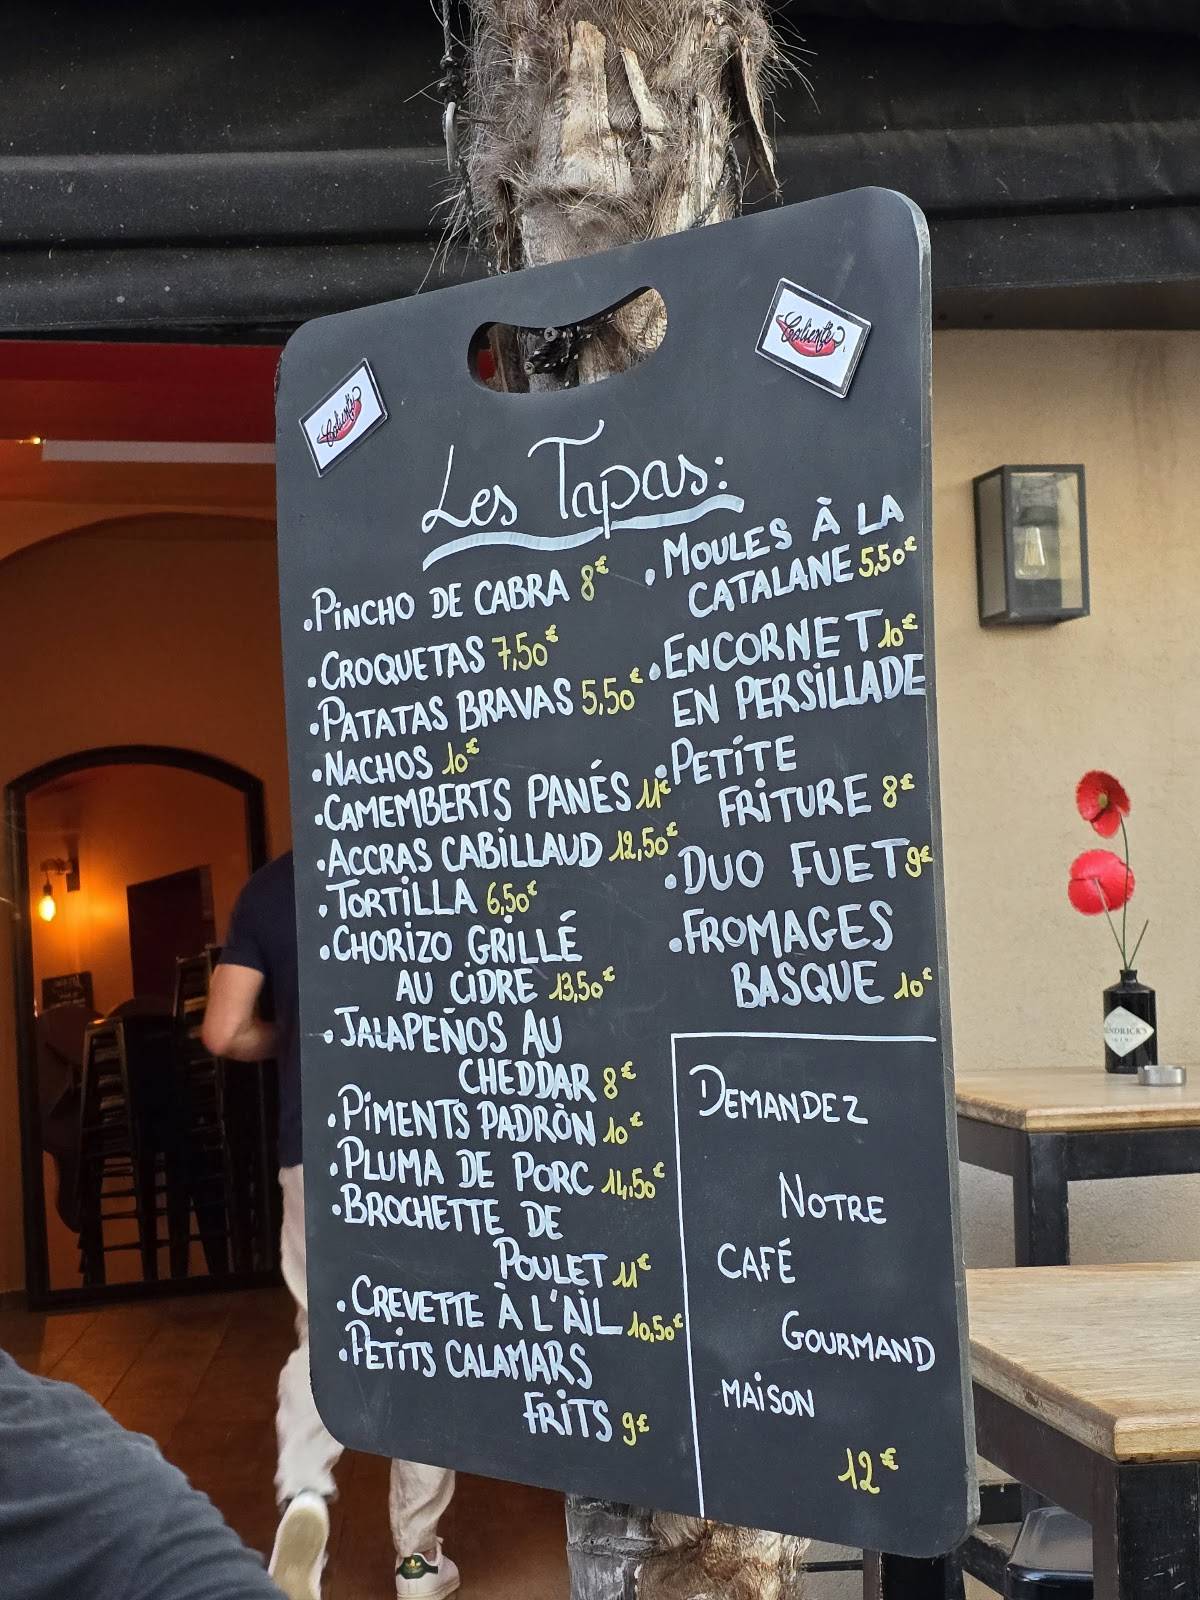 Caliente
Caliente
Les Tapas:
.PINCHO DE CABRA 8€
.CROQUETAS 7,50€
.PATATAS BRAVAS 5,50€
.NACHOS 10€
.CAMEMBERTS PANÉS 11€
.ACCRAS CABILLAUD 12,50€
.TORTILLA 6,50€
.CHORIZO GRILLÉ
AU CIDRE 13,50€
.JALAPEÑOS AU
CHEDDAR 8€
.PIMENTS PADRÒN 10€
.PLUMA DE PORC 14,50€
.BROCHETTE DE
POULET 11€
.CREVETTE À L'AIL 10,50€
.PETITS CALAMARS
FRITS 9€
.MOULES À LA
CATALANE 5,50€
.ENCORNET 10€
EN PERSILLADE
.PETITE
FRITURE 8€
.DUO FUET 9€
.FROMAGES
BASQUE 10€
DEMANDEZ
NOTRE
CAFÉ
GOURMAND
MAISON
12€
HENDRICK'S
GIN